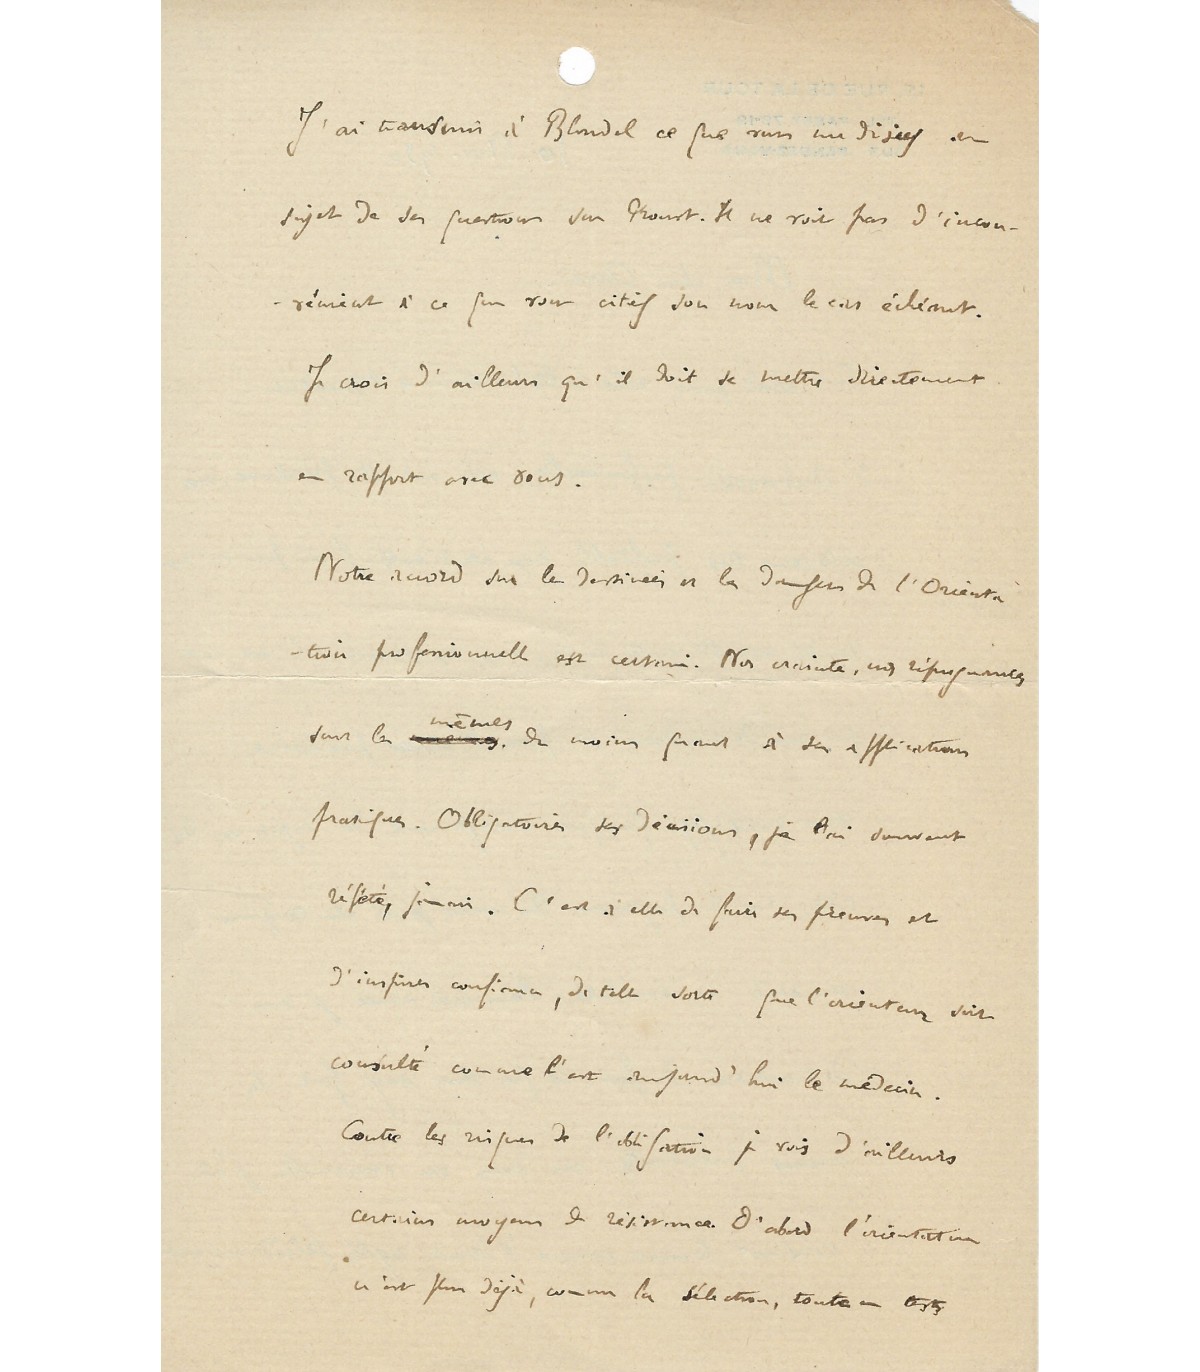 J'ai transmis à Blondel ce que vous me disiez au
sujet de ses questions sur Proust. Il ne voit pas d'incon-
-vénient à ce que vous citiez son nom le cas échéant.
Je crois d'ailleurs qu'il doit se mettre directement
en rapport avec vous.
Notre accord sur les destinées et les dangers de l'Orienta
-tion professionnelle est certain. Nos craintes, nos répugnances
sont les mêmes, du moins quant à ses applications
pratiques. Obligatoires ses décisions, je l'ai souvent
répété, jamais. C'est à elle de faire ses preuves et
d'inspirer confiance, de telle sorte que l'orienteur soit
consulté comme l'est aujourd'hui le médecin.
Contre les risques de l'obligation je vois d'ailleurs
certains moyens de résistance. D'abord l'orientation
n'est plus déjà, comme la sélection, toute en tests